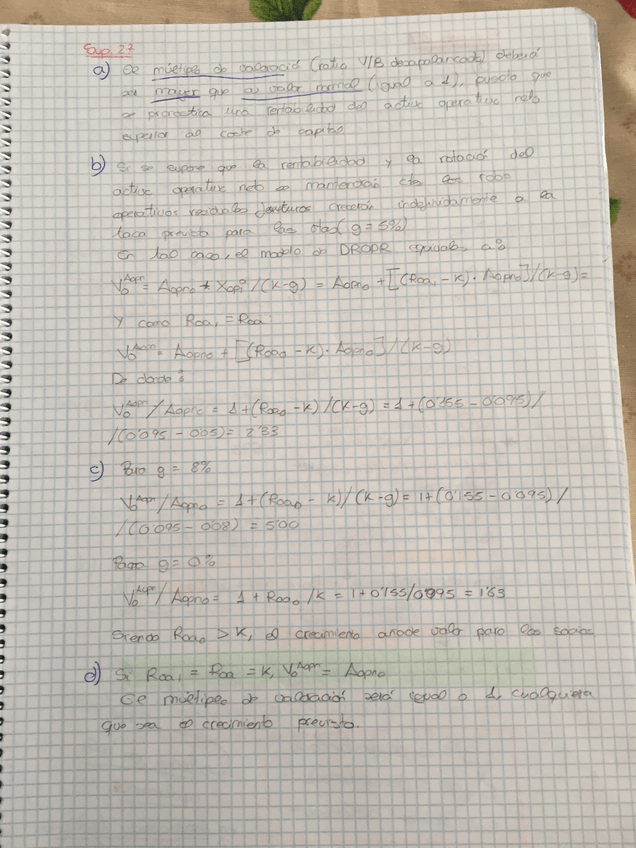 Exp. 27
a) El múltiplo de valoración (ratio V/B desapalancado) deberá
ser mayor que al valor normal (igual a 1), puesto que
se pronostica una rentabilidad del activo operativo neto
superior al coste de capital
b) Si se supone que la rentabilidad y la rotación del
activo operativo neto se mantendrán ctes
operativos residuales futuros crecerán indefinidamente a la
tasa prevista para las vtas (g = 5%)
En tal caso, el modelo de DROPR equivale a:
V₀^Aopn = Aopn₀ + Xopi / (K-g) = Aopn₀ + [(Roa₁ - K) · Aopn₀] / (K-g) =
Y como Roa₁ = Roa
V₀^Aopn = Aopn₀ + [(Roa₀ - K) · Aopn₀] / (K-g)
De donde:
V₀^Aopn / Aopn₀ = 1 + (Roa₀ - K) / (K-g) = 1 + (0'155 - 0'095) /
/ (0'095 - 0'05) = 2'33
c) Para g = 8%
V₀^Aopn / Aopn₀ = 1 + (Roa₀ - K) / (K-g) = 1 + (0'155 - 0'095) /
/ (0'095 - 0'08) = 5'00
Para g = 0%
V₀^Aopn / Aopn₀ = 1 + Roa₀ / K = 1 + 0'155 / 0'095 = 1'63
Siendo Roa₀ > K, el crecimiento añade valor para los socios
d) Si Roa₁ = Roa = K, V₀^Aopn = Aopn₀
El múltiplo de valoración será igual a 1, cualquiera
que sea el crecimiento previsto.